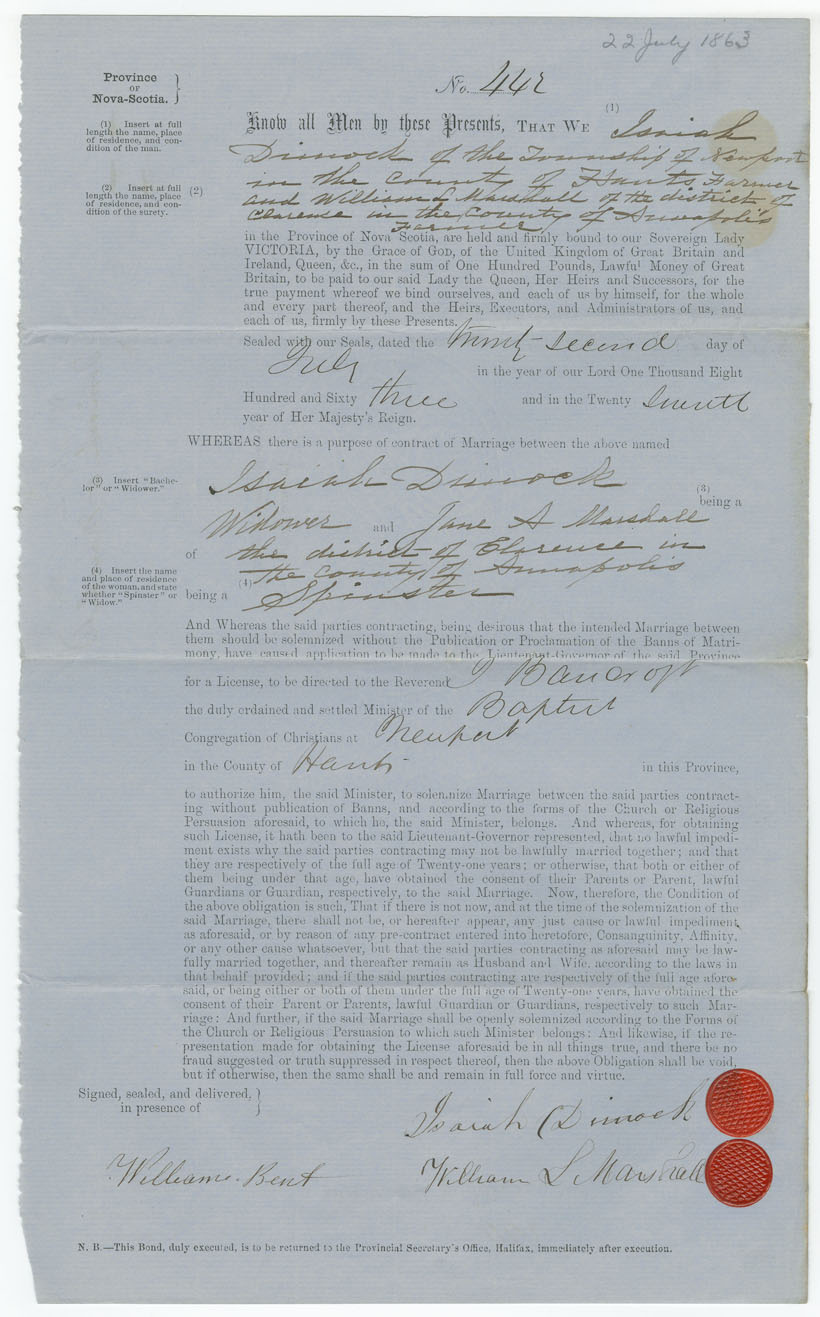 22 July 1863
Province
OF
Nova-Scotia.
No. 442
(1) Insert at full
length the name, place
of residence, and con-
dition of the man.
(1)
Know all Men by these Presents, THAT WE Isaiah
Dimock of the Township of Newport
(2) Insert at full
length the name, place
of residence, and con-
dition of the surety.
(2)
in the County of Hants Farmer
and William L Marshall of the district of
Clarence in the County of Annapolis
Farmer
in the Province of Nova Scotia, are held and firmly bound to our Sovereign Lady
VICTORIA, by the Grace of GOD, of the United Kingdom of Great Britain and
Ireland, Queen, &c., in the sum of One Hundred Pounds, Lawful Money of Great
Britain, to be paid to our said Lady the Queen, Her Heirs and Successors, for the
true payment whereof we bind ourselves, and each of us by himself, for the whole
and every part thereof, and the Heirs, Executors, and Administrators of us, and
each of us, firmly by these Presents.
Sealed with our Seals, dated the twenty second day of
July in the year of our Lord One Thousand Eight
Hundred and Sixty three and in the Twenty
year of Her Majesty's Reign.
WHEREAS there is a purpose of contract of Marriage between the above named
(3) Insert "Bache-
lor" or "Widower."
Isaiah Dimock
(3)
being a
Widower and Jane A Marshall
of the district of Clarence in
(4) Insert the name
and place of residence
of the woman, and state
whether "Spinster" or
"Widow."
the county of Annapolis
(4)
being a Spinster
And Whereas the said parties contracting, being desirous that the intended Marriage between
them should be solemnized without the Publication or Proclamation of the Banns of Matri-
mony, have caused application to be made to the Lieutenant-Governor of the said Province
for a License, to be directed to the Reverend J Bancroft
the duly ordained and settled Minister of the Baptist
Congregation of Christians at Newport
in the County of Hants in this Province,
to authorize him, the said Minister, to solemnize Marriage between the said parties contract-
ing without publication of Banns, and according to the forms of the Church or Religious
Persuasion aforesaid, to which he, the said Minister, belongs. And whereas, for obtaining
such License, it hath been to the said Lieutenant-Governor represented, that no lawful impedi-
ment exists why the said parties contracting may not be lawfully married together; and that
they are respectively of the full age of Twenty-one years; or otherwise, that both or either of
them being under that age, have obtained the consent of their Parents or Parent, lawful
Guardians or Guardian, respectively, to the said Marriage. Now, therefore, the Condition of
the above obligation is such, That if there is not now, and at the time of the solemnization of the
said Marriage, there shall not be, or hereafter appear, any just cause or lawful impediment,
as aforesaid, or by reason of any pre-contract entered into heretofore, Consanguinity, Affinity,
or any other cause whatsoever, but that the said parties contracting as aforesaid may be law-
fully married together, and thereafter remain as Husband and Wife, according to the laws in
that behalf provided; and if the said parties contracting are respectively of the full age afore-
said, or being either or both of them under the full age of Twenty-one years, have obtained the
consent of their Parent or Parents, lawful Guardian or Guardians, respectively to such Mar-
riage: And further, if the said Marriage shall be openly solemnized according to the Forms of
the Church or Religious Persuasion to which such Minister belongs: And likewise, if the re-
presentation made for obtaining the License aforesaid be in all things true, and there be no
fraud suggested or truth suppressed in respect thereof, then the above Obligation shall be void,
but if otherwise, then the same shall be and remain in full force and virtue.
Signed, sealed, and delivered,
in presence of
Isaiah Dimock
William Bent William L Marshall
N. B.—This Bond, duly executed, is to be returned to the Provincial Secretary's Office, Halifax, immediately after execution.